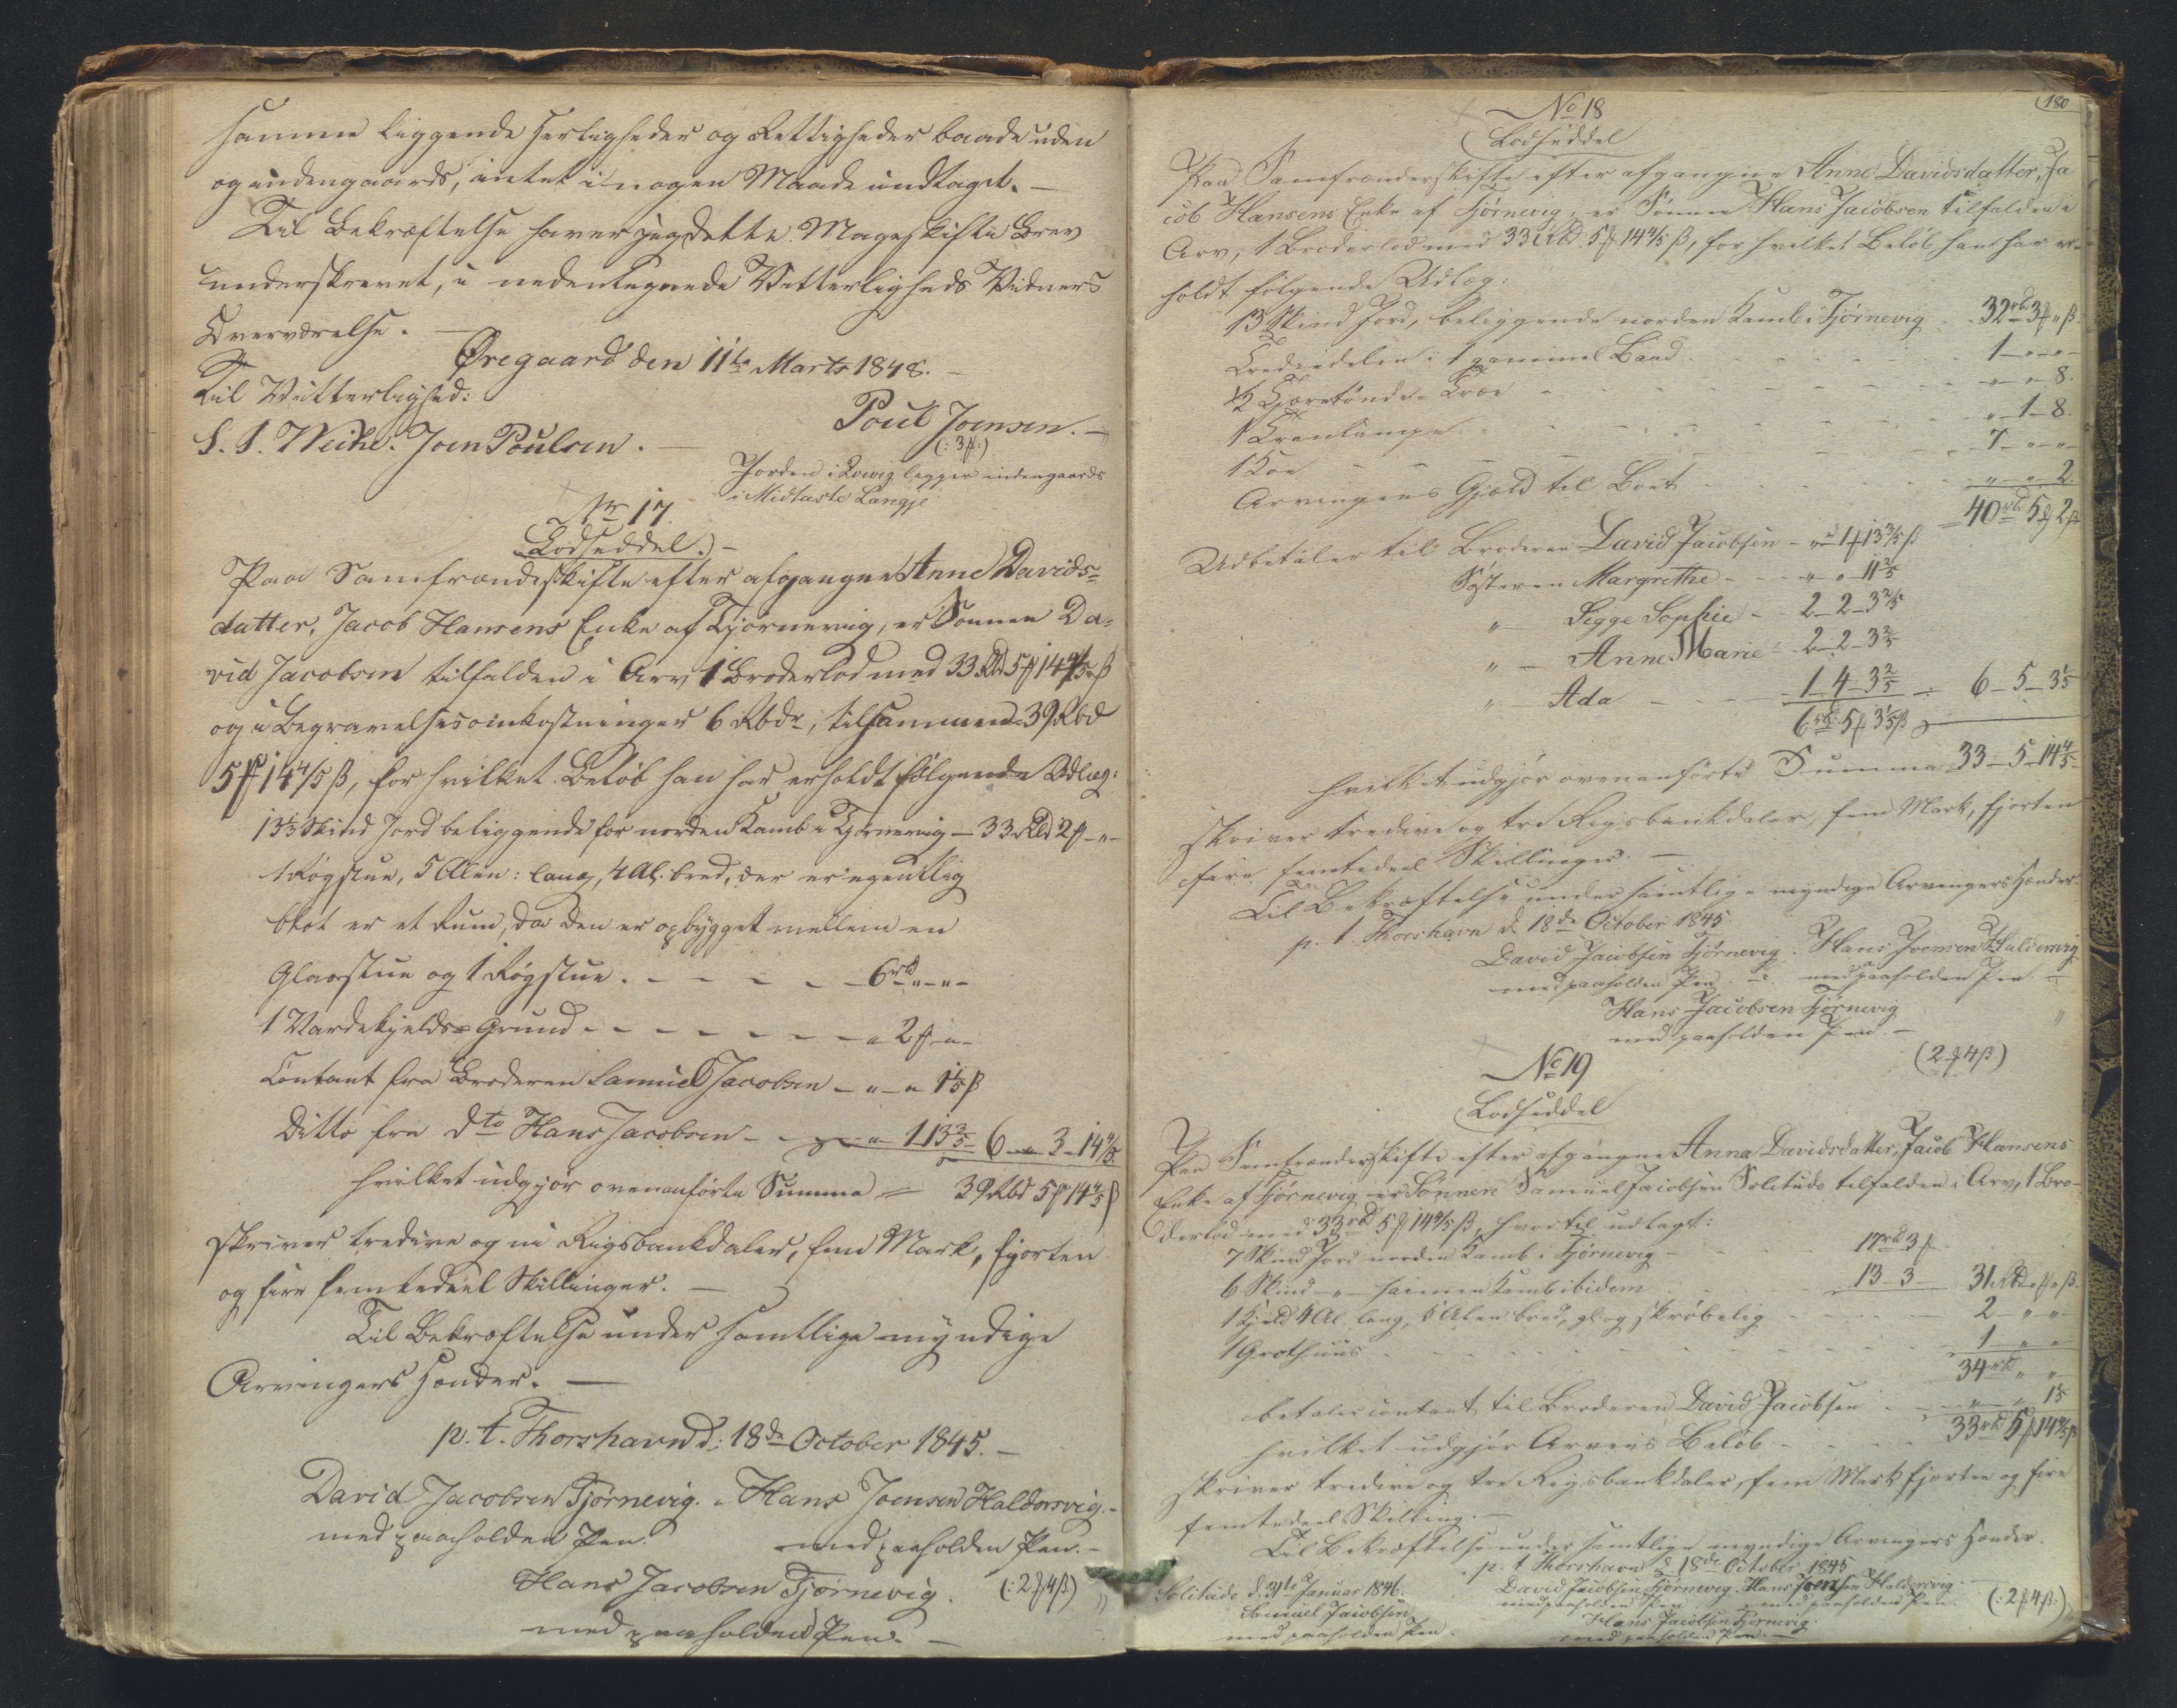 samme liggende Herligheder og Rettigheder baade uden
og indengaards, intet i nogen Maade undtaget. —
Til Bekræftelse haver jeg dette Mageskifte Brev
underskrevet, i nedentegnede Vitterligheds Vidners
Overværelse. —
Øregaard den 11te Marts 1848. —
Til Vitterlighed:
Poul Joensen. —
S. S. Weihe. Joen Poulsen. —
(: 3 ϸ :)
Jorden i ligger indengaards
i Midtaste Langje
No 17.
Lodseddel. —
Paa Samfrændeskifte efter afgangne Anne Davids-
datter, Jacob Hansens Enke af Tjørnevig, er Sønnen Da-
vid Jacobsen tilfalden i Arv 1 Broderlod med 33 Rbd 5 ϸ 14 4/5 ß
og i Begravelsesomkostninger 6 Rbdr, tilsammen 39 Rbd
5 ϸ 14 4/5 ß, for hvilket Beløb han har erholdt følgende Udlæg:
13 1/3 Skind Jord beliggende for norden Kamb i Tjørnevig — 33 Rbd 2 ϸ - " -
1 Røgstue, 5 Alen: lang, 4 Al. bred, der er egentlig
blot er et Rum, da den er opbygget mellem en
Glasstue og 1 Røgstue. - - - - 6 rbd - " - " -
1 Grund - - - - - - - - " 2 ϸ - " -
Contant fra Broderen Samuel Jacobsen - " - " 1 1/5 ß
Ditto fra dto Hans Jacobsen - - " 1 13 3/5 6 - 3 - 14 4/5
hvilket udgjør ovenanførte Summa = 39 Rbd 5 ϸ 14 4/5 ß
skriver tredive og ni Rigsbankdaler, fem Mark, fjorten
og fire femtedeel Skillinger. —
Til Bekræftelse under samtlige myndige
Arvingers Hænder. —
p. t. Thorshavn d: 18de October 1845. —
David Jacobsen Tjørnevig. Hans Joensen Haldorsvig. -
med paaholden Pen. med paaholden Pen. -
Hans Jacobsen Tjørnevig. (: 2 ϸ 4 ß :)
med paaholden Pen. —
180
No 18
Lodseddel
Paa Samfrænderskifte efter afgangne Anne Davidsdatter, Ja
cob Hansens Enke af Tjørnevig, er Sønnen Hans Jacobsen tilfalden i
Arv, 1 Broderlod med 33 Rbd. 5 ϸ 14 4/5 ß, for hvilket Beløb han har er-
holdt følgende Udlæg:
13 Skind Jord, beliggende norden Kamb i Tjørnevig - 32 rbd 3 ϸ " ß
Trediedelen i 1 gammel Baad - - - 1 - " - " -
1/2 - - - " - " - 8.
1 Tranlampe - - - " - 1 - 8.
1 Koe - - - 7 - " - " -
Arvingens Gjæld til Boet - - - " - " - 2.
40 rbd 5 ϸ 2 ß
Udbetaler til Broderen David Jacobsen - " 1 ϸ 13 3/5 ß
Søsteren Margrethe - - " - " - 11 2/5
" — Sigge Sophie - 2 - 2 - 3 2/5
" — Anne Marie - 2 - 2 - 3 2/5
" Ada - - 1 - 4 - 3 2/5 ÷ 6 - 5 - 3 1/5
6 rbd 5 ϸ 3 1/5 ß
hvilket udgjør ovenanførte Summa 33 - 5 - 14 4/5
skriver tredive og tre Rigsbankdaler, fem Mark, fjorten
fire femtedeel Skillinger. —
Til Bekræftelse under samtlige myndige Arvingers Hænder.
p. t. Thorshavn d. 18de October 1845
David Jacobsen Tjørnevig. Hans Joensen Haldorsvig
med paaholden Pen. med paaholden Pen. —
Hans Jacobsen Tjørnevig
med paaholden Pen. —
(2 ϸ 4 ß)
No 19
Lodseddel
Paa Samfrænderskifte efter afgangne Anna Davidsdatter, Jacob Hansens
Enke af Tjørnevig er Sønnen Samuel Jacobsen Solitude tilfalden i Arv, 1 Bro-
derlod med 33 rbd 5 ϸ 14 4/5 ß, hvortil udlagt:
7 Skind Jord norden Kamb i Tjørnevig - - 17 rbd 3 ϸ
6 Skind - " - Kamb ibidem - - 13 - 3 - 31 Rbd " ϸ " ß
1 Kjeld 4 Al. lang, 5 Alen bred, gl. og skrøbelig - - - 2 " "
1 Grothuus - - - 1 " "
34 rbd " "
betaler contant til Broderen David Jacobsen - - " " 1 1/5
hvilket udgjør Arvens Beløb - - - 33 rbd 5 ϸ 14 4/5 ß
skriver tredive og tre Rigsbankdaler, fem Mark fjorten og fire
femtedeel Skilling. —
Til Bekræftelse under samtlige myndige Arvingers Hænder.
p. t. Thorshavn d 18de October 1845
Solitude d. 31te Januar 1846. David Jacobsen Tjørnevig. Hans Joensen Haldorsvig.
Samuel Jacobsen med paaholden Pen med paaholden Pen. (: 2 ϸ 4 ß :)
med paaholden Pen. Hans Jacobsen Tjørnevig.
med paaholden Pen. —